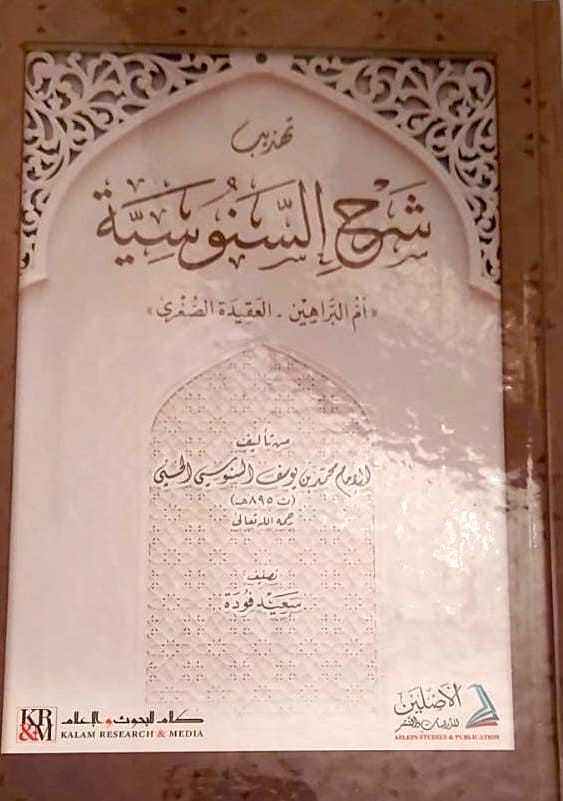 تهذيب
شَرْحِ السَّنُوسِيَّة
«أُمّ البَرَاهِيْن - العَقِيدَة الصُّغْرى»
من تأليف
الإمام محمد بن يوسف السنوسي الحسني
(ت ٨٩٥ هـ)
رحمه الله تعالى
تصنيف
سَعِيْد فُودَة
KR&M
كلام للبحوث و الإعلام
KALAM RESEARCH & MEDIA
الأَصْلَيْن
للدراسات والنشر
ASLEIN STUDIES & PUBLICATION